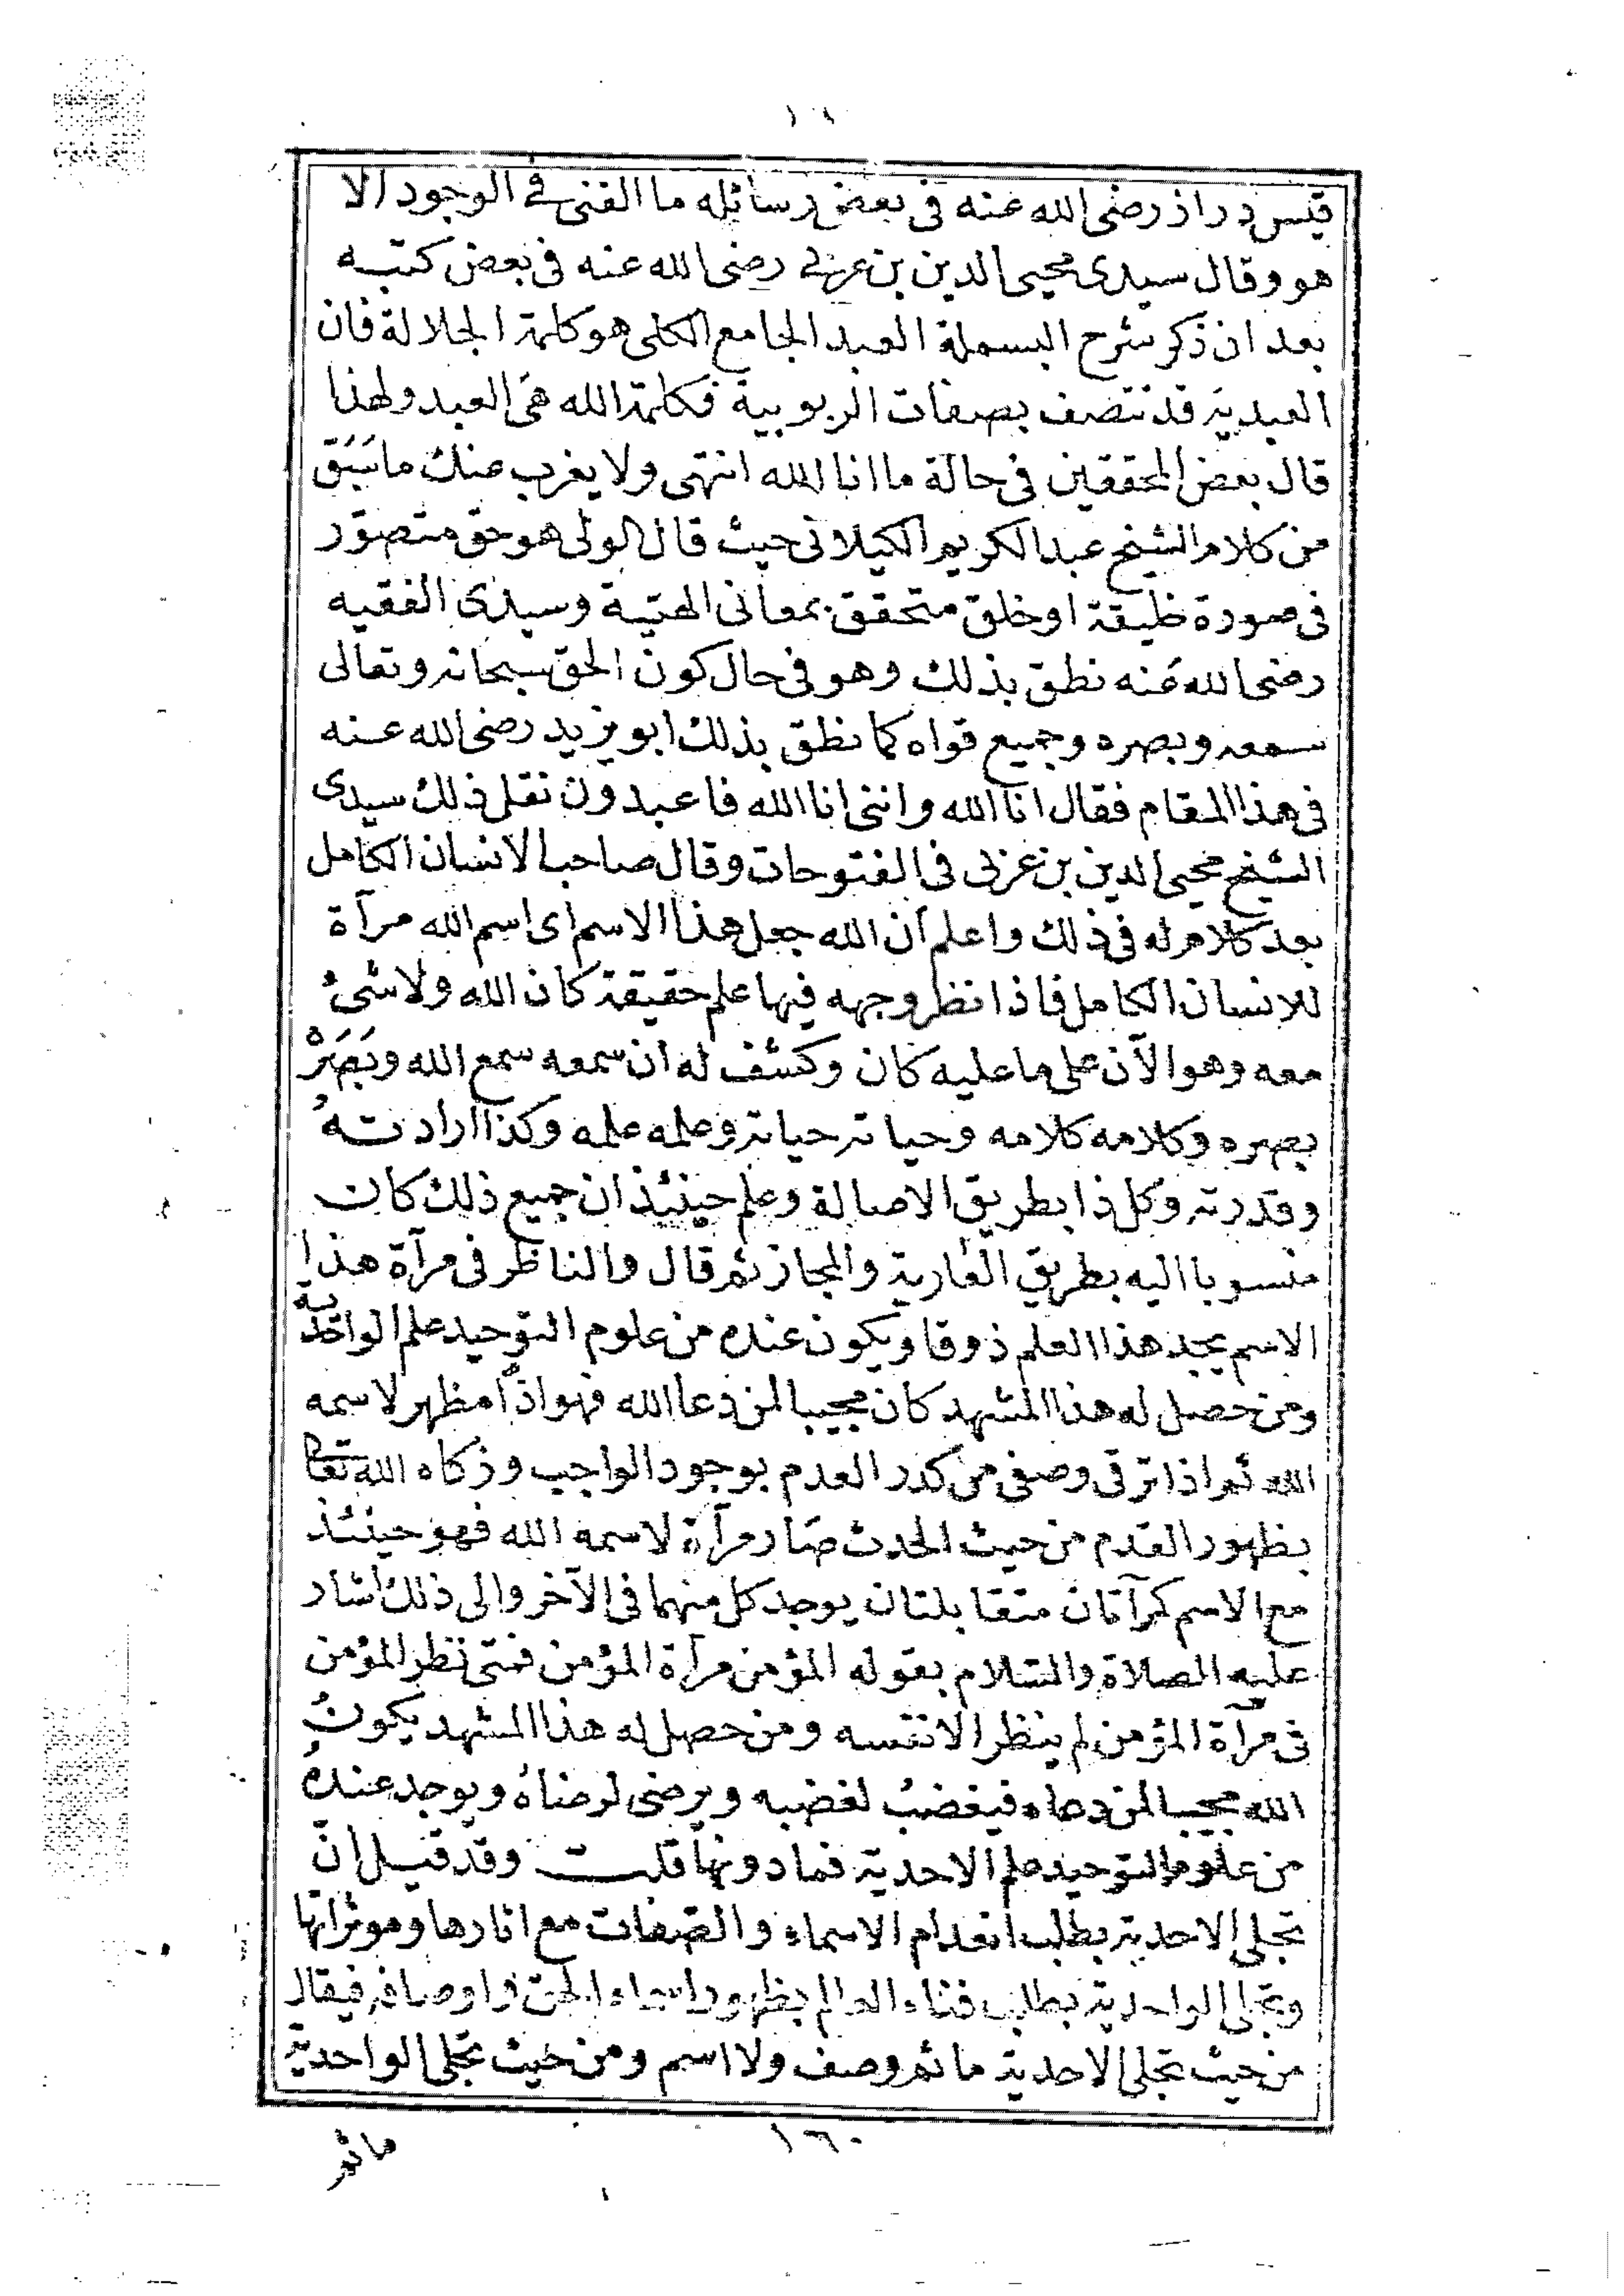 ١٨
قيس دراز رضى الله عنه فى بعض رسائله ما الفنى فى الوجود الا
هو وقال سيدى محيى الدين بن عربى رضى الله عنه فى بعض كتبه
بعد ان ذكر شرح البسملة العبد الجامع الكلى هو كلمة الجلالة فان
العبدية قد تتصف بصفات الربوبية فكلمة الله هى العبد ولهذا
قال بعض المحققين فى حالة ما انا الله انتهى ولا يغرب عنك ما سَبَق
من كلام الشيخ عبد الكريم الكيلانى حيث قال الولى هو حق متصوّر
فى صورة خليقة او خلق متحقق بمعانى الهتية وسيدى الفقيه
رضى الله عنه نطق بذلك وهو فى حال كون الحق سبحانه وتعالى
سمعه وبصره وجميع قواه كما نطق بذلك ابو يزيد رضى الله عنه
فى هذا المقام فقال انا الله واننى انا الله فاعبدون نقل ذلك سيدى
الشيخ محيى الدين بن عربى فى الفتوحات وقال صاحب الانسان الكامل
بعد كلام له فى ذلك واعلم أن الله جعل هذا الاسم اى اسم الله مرآة
للانسان الكامل فاذا نظر وجهه فيها علم حقيقة كان الله ولا شىء
معه وهو الآن على ما عليه كان وكشف له ان سمعه سمع الله وبَصَرهْ
بصره وكلامه كلامه وحياته حياته وعلمه علمه وكذا ارادتهُ
وقدرته وكل ذا بطريق الاصالة وعلم حينئذ ان جميع ذلك كان
منسوبا اليه بطريق العارية والمجاز ثم قال والناظر فى مرآة هذا
الاسم يجد هذا العلم ذوقا ويكون عنده من علوم التوحيد علم الواحدية
ومن حصل له هذا المشهد كان مجيبا لمن دعا الله فهو اذًا مظهر لاسمه
الله ثم اذا ترقى وصفى من كدر العدم بوجود الواجب وزكاه الله تعا
بظهور القدم من حيث الحدث صَار مرآة لاسمه الله فهو حينئذ
مع الاسم كمرآتان متقابلتان يوجد كل منهما فى الآخر والى ذلك اشار
عليه الصلاة والسّلام بقوله المؤمن مرآة المؤمن فمتى نظر المؤمن
فى مرآة المؤمن لم ينظر الا نفسه ومن حصل له هذا المشهد يكونُ
الله مجيبا لمن دعاه فيغضبُ لغضبه ويرضى لرضاهُ ويوجد عندهُ
من علوم التوحيد علم الاحدية فما دونها قلت وقد قيل انّ
تجلى الاحدية يطلب انعدام الاسماء والصّفات مع اثارها وموثراتها
وتجلى الواحدية يطلب فناء العالم بظهور اسماء الحق واوصافه فيقال
من حيث تجلى الاحدية ما ثم وصف ولا اسم ومن حيث تجلى الواحدية
ما ثم
١٦٠